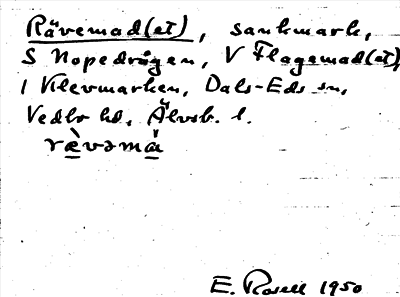 Rävemad(et), sankmark,
S Nopedrågen, V Flagemad(et)
i Klevmarken, Dals-Eds sn,
Vedbo hd, Älvsb. l.
rὲvəmà
E. Rosell 1950